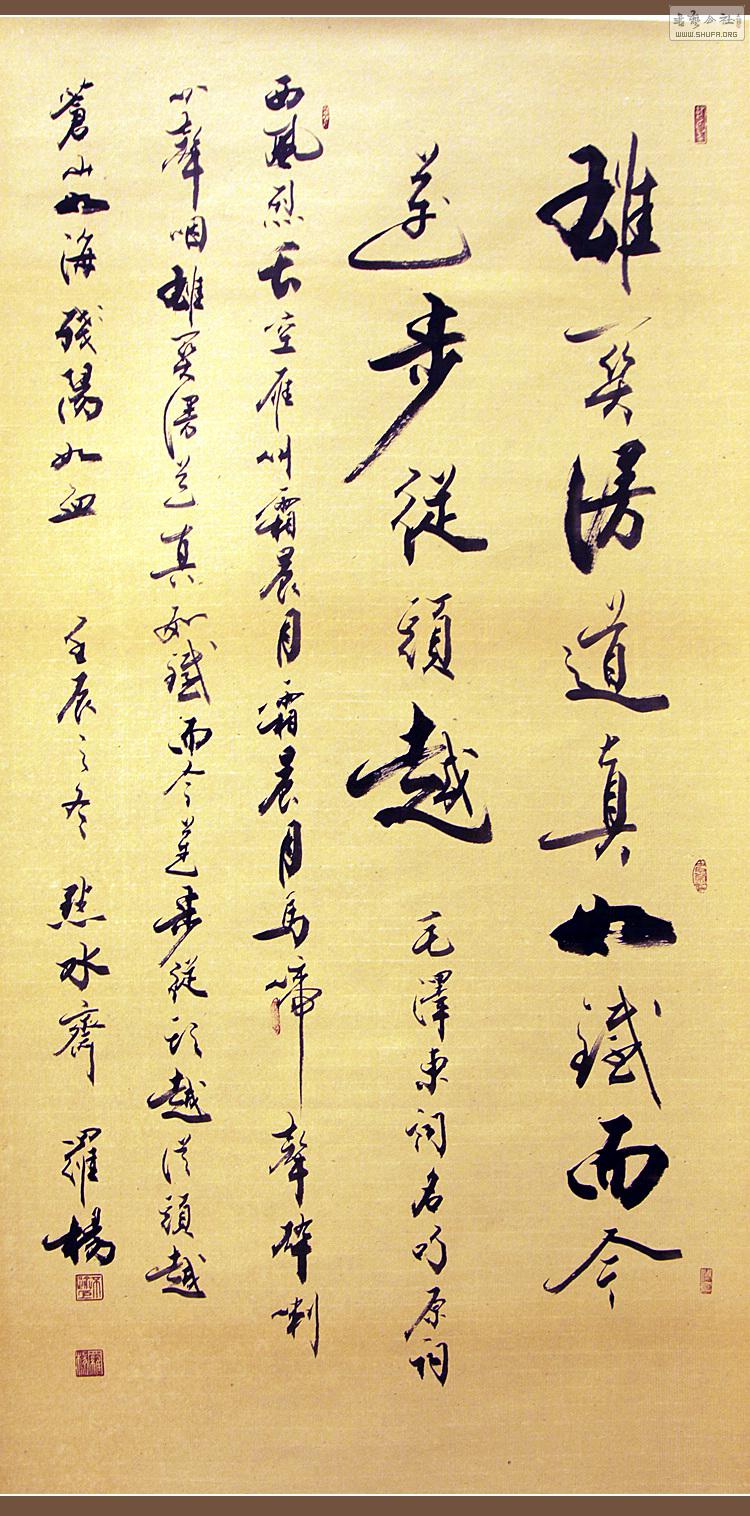 雄關漫道真如鐵而今
邁步從頭越 毛澤東詞名句原詞
西風烈長空雁叫霜晨月霜晨月馬啼聲碎喇
叭聲咽雄關漫道真如鐵而今邁步從頭越從頭越
蒼山如海殘陽如血 壬辰之冬 點水齋 羅楊
WWW.SHUFA.ORG